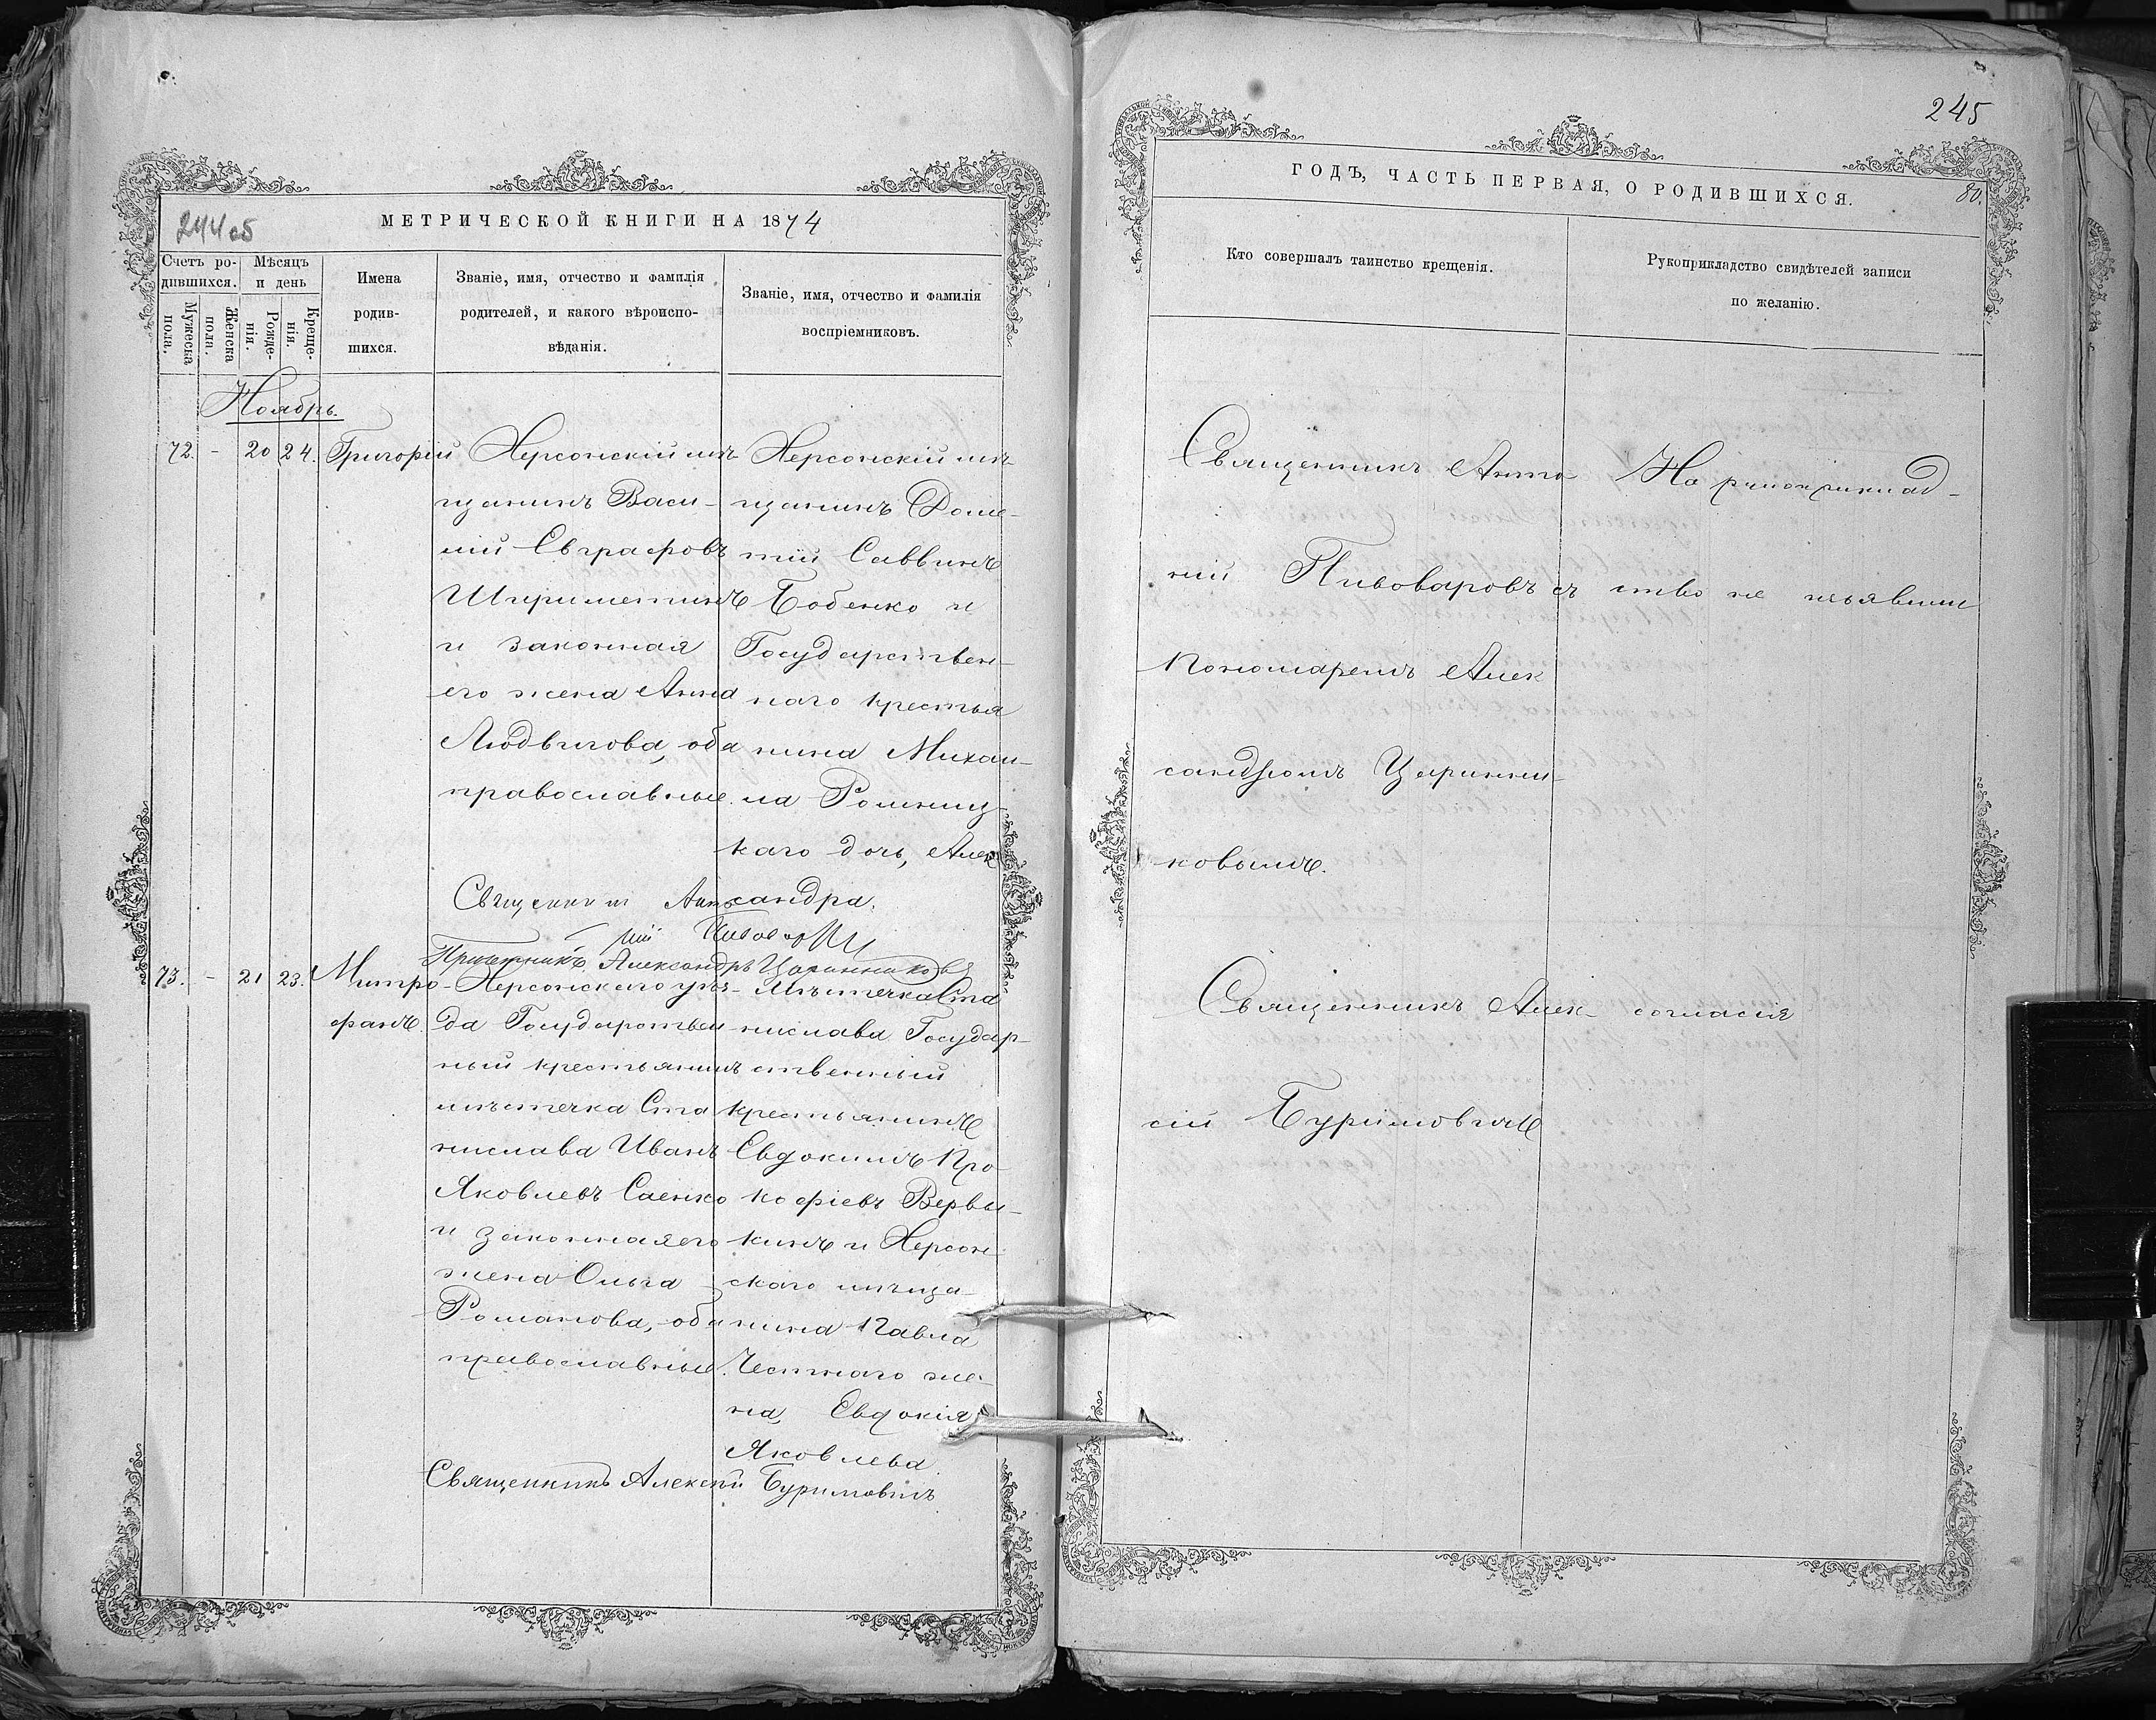 244об
МЕТРИЧЕСКОЙ КНИГИ НА 1874
Счетъ ро-
дившихся.
Мѣсяцъ
и день
Мужеска
пола.
Женска
пола.
Рожде-
нія.
Креще-
нія.
Имена
родив-
шихся.
Званіе, имя, отчество и фамилія
родителей, и какого вѣроиспо-
вѣданія.
Званіе, имя, отчество и фамилія
воспріемниковъ.
Ноябрь.
72. - 20 24. Григорій
Херсонскій мѣ-
щанинъ Васи-
лій Евграфовъ
и законная
его жена Анна
Людвигова, оба
православные.
Херсонскій мѣ-
щанинъ Доме-
тій Саввинъ
Бобенко и
Государствен-
наго крестья
нина Михаи-
ла
каго дочь, Алек
сандра.
Священник Анто
ній
Причетникъ Александръ Царинниковъ
73. - 21 23. Митро-
фанъ.
Херсонскаго уѣз-
да Государствен
ный крестьянинъ
мѣстечка Ста
нислава Иванъ
Яковлевъ Саенко
и законная его
жена Ольга
Романова, оба
православные.
Мѣстечка Ста
нислава Государ-
ственный
крестьянинъ
Евдокимъ Про
кофіевъ Вервы-
кинъ и Херсон-
скаго мѣща-
нина Павла
Честнаго же-
на, Евдокія
Яковлева
Священникъ Алексій Буримовичъ
245
80.
ГОДЪ, ЧАСТЬ ПЕРВАЯ, О РОДИВШИХСЯ.
Кто совершалъ таинство крещенія.
Рукоприкладство свидѣтелей записи
по желанію.
Священникъ Анто
ній Пивоваровъ съ
пономаремъ Алек
сандромъ Царинни-
ковымъ.
На рукоприклад-
ство не изъявили
Священникъ Алек-
сій Буримовичъ
согласія